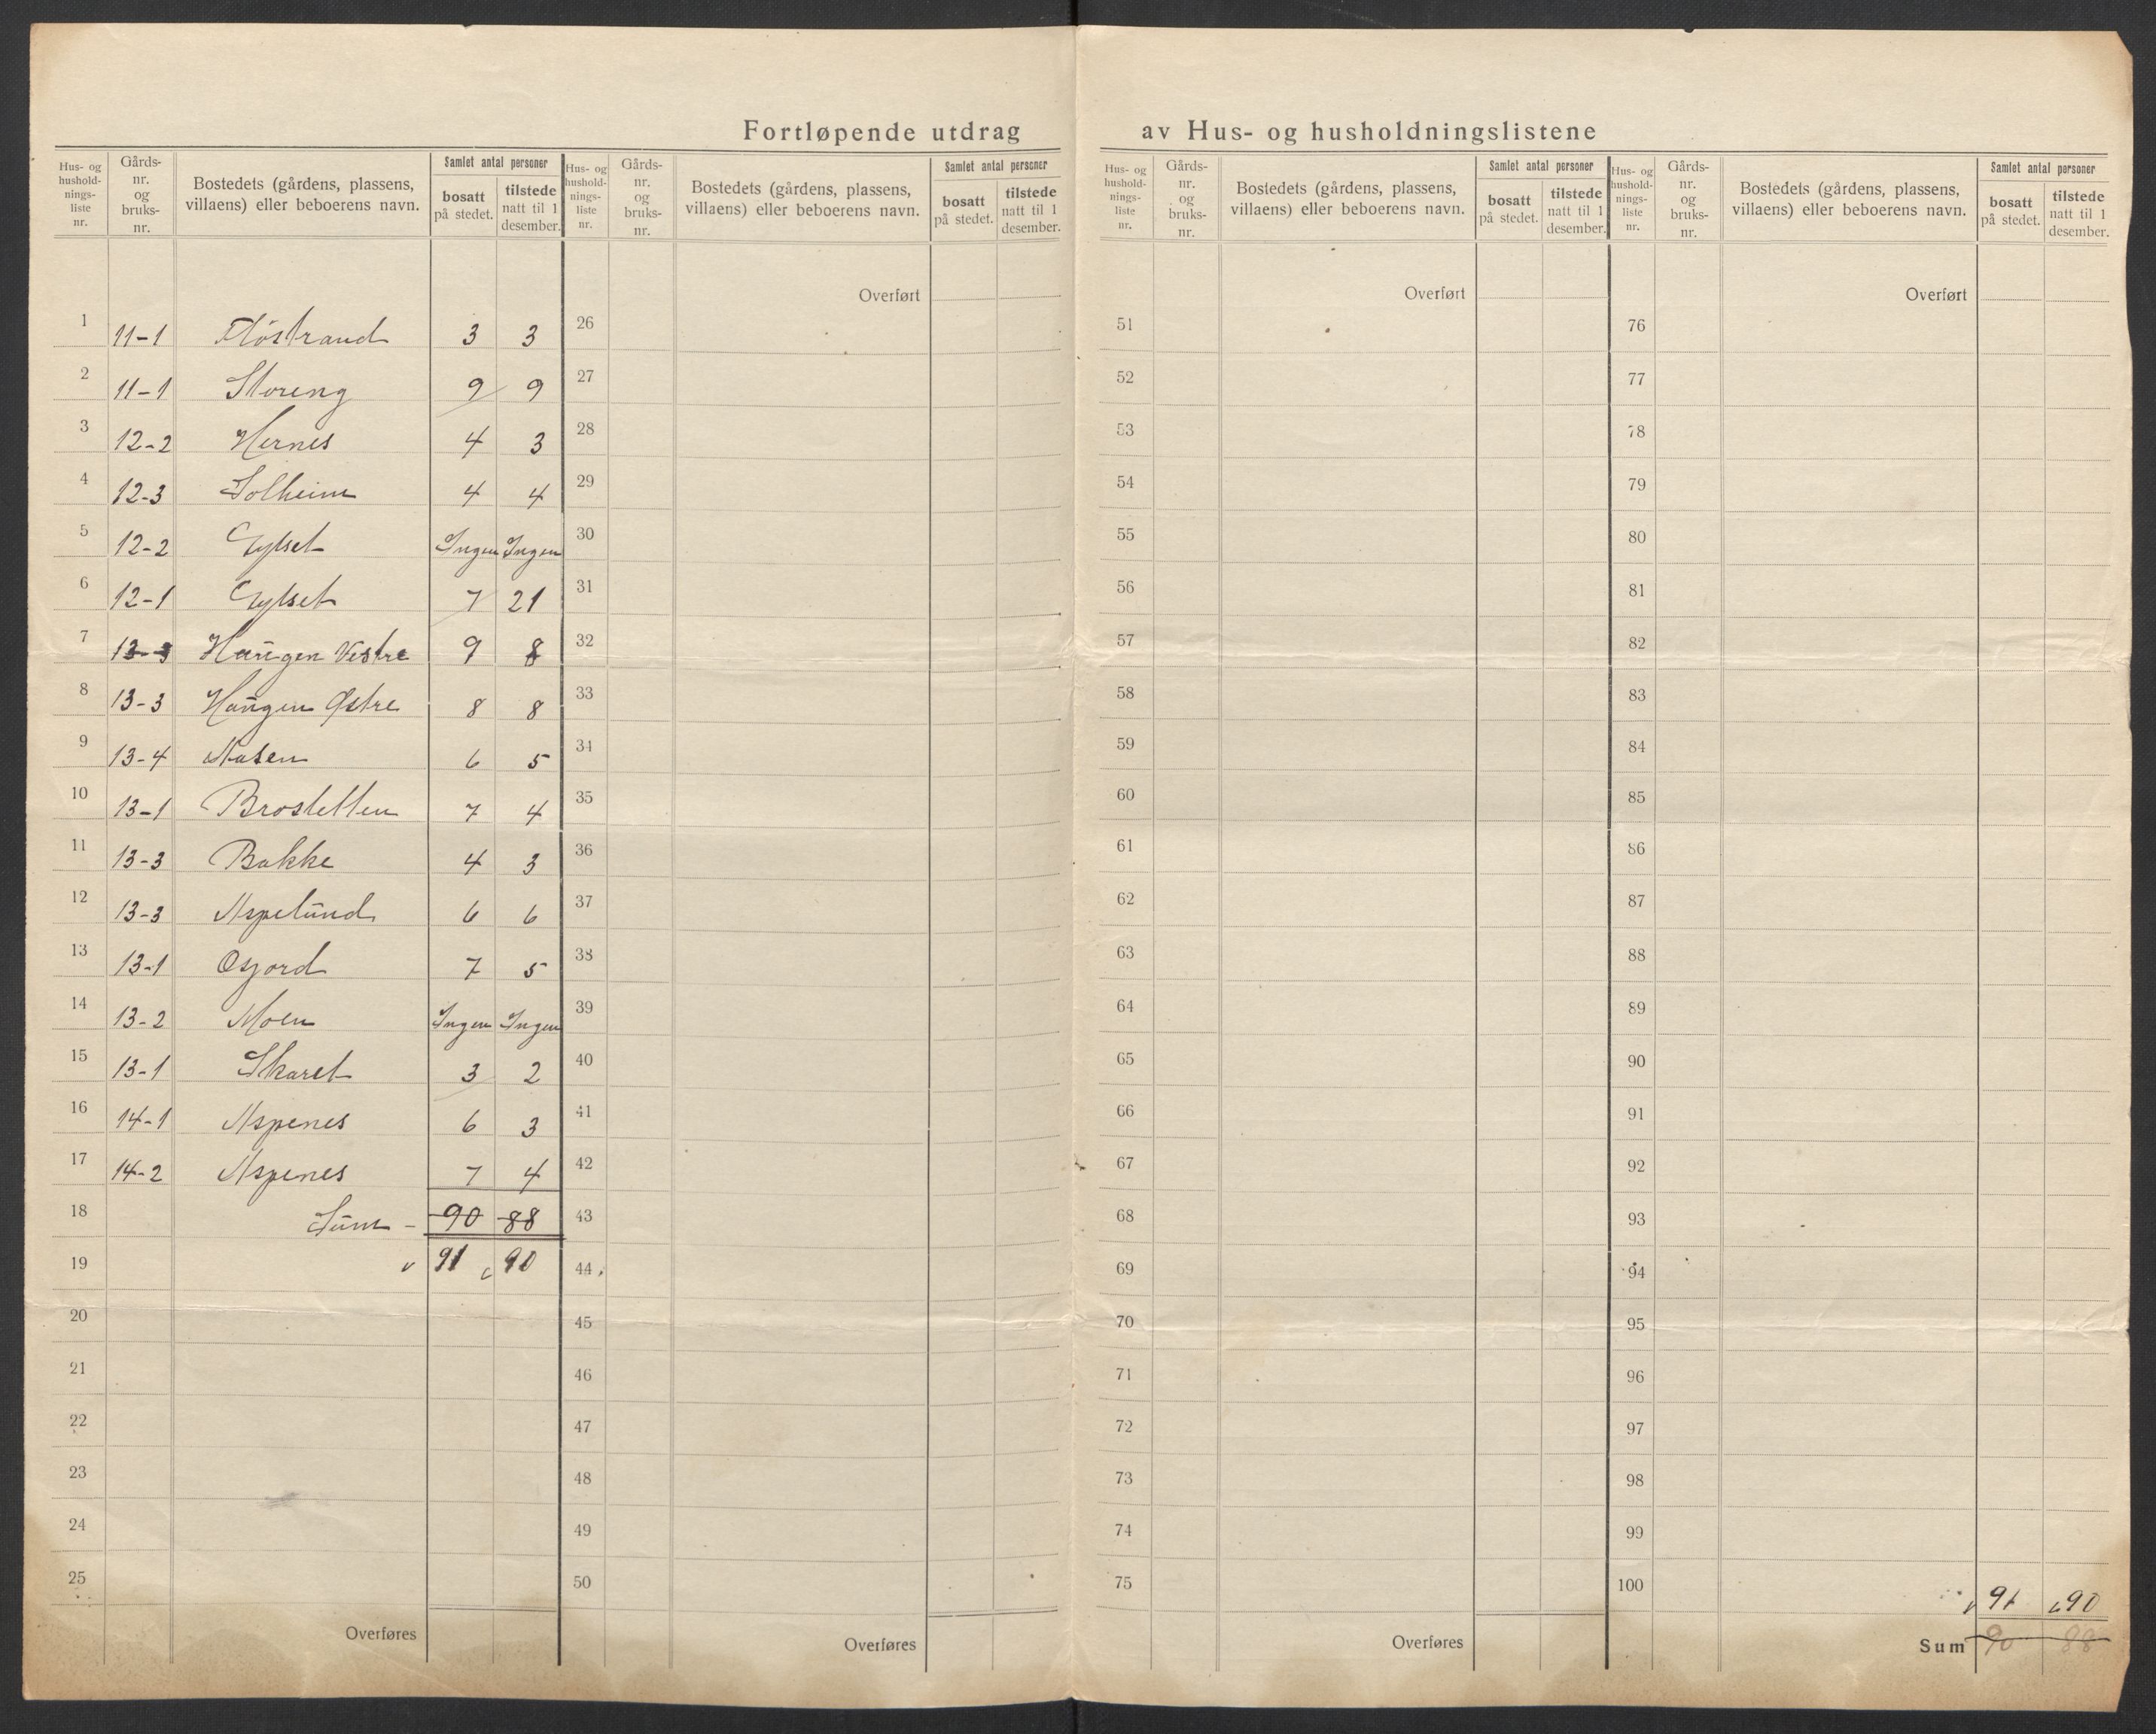 Fortløpende utdrag av Hus- og husholdningslistene
Hus- og hushold-nings-liste nr. Gårds-nr. og bruks-nr. Bostedets (gårdens, plassens, villaens) eller beboerens navn. Samlet antal personer bosatt på stedet. tilstede natt til 1 desember.
Hus- og hushold-nings-liste nr. Gårds-nr. og bruks-nr. Bostedets (gårdens, plassens, villaens) eller beboerens navn. Samlet antal personer bosatt på stedet. tilstede natt til 1 desember.
Hus- og hushold-nings-liste nr. Gårds-nr. og bruks-nr. Bostedets (gårdens, plassens, villaens) eller beboerens navn. Samlet antal personer bosatt på stedet. tilstede natt til 1 desember.
Hus- og hushold-nings-liste nr. Gårds-nr. og bruks-nr. Bostedets (gårdens, plassens, villaens) eller beboerens navn. Samlet antal personer bosatt på stedet. tilstede natt til 1 desember.
1 11-1 Fløstrand 3 3
2 11-1 Storeng 9 9
3 12-2 Hernes 4 3
4 12-3 Solheim 4 4
5 12-2 Gylset Ingen Ingen
6 12-1 Gylset 7 21
7 13-3 Haugen Vestre 9 8
8 13-3 Haugen Østre 8 8
9 13-4 Nasen 6 5
10 13-1 Brostetten 7 4
11 13-3 Bakke 4 3
12 13-3 Aspelund 6 6
13 13-1 Osjord 7 5
14 13-2 Moen Ingen Ingen
15 13-1 Skaret 3 2
16 14-1 Aspenes 6 3
17 14-2 Aspenes 7 4
18 Sum - 90 88
19 91 90
20
21
22
23
24
25
Overføres
Overført
26
27
28
29
30
31
32
33
34
35
36
37
38
39
40
41
42
43
44
45
46
47
48
49
50
Overføres
Overført
51
52
53
54
55
56
57
58
59
60
61
62
63
64
65
66
67
68
69
70
71
72
73
74
75
Overføres
Overført
76
77
78
79
80
81
82
83
84
85
86
87
88
89
90
91
92
93
94
95
96
97
98
99
100 91 90
Sum 90 88